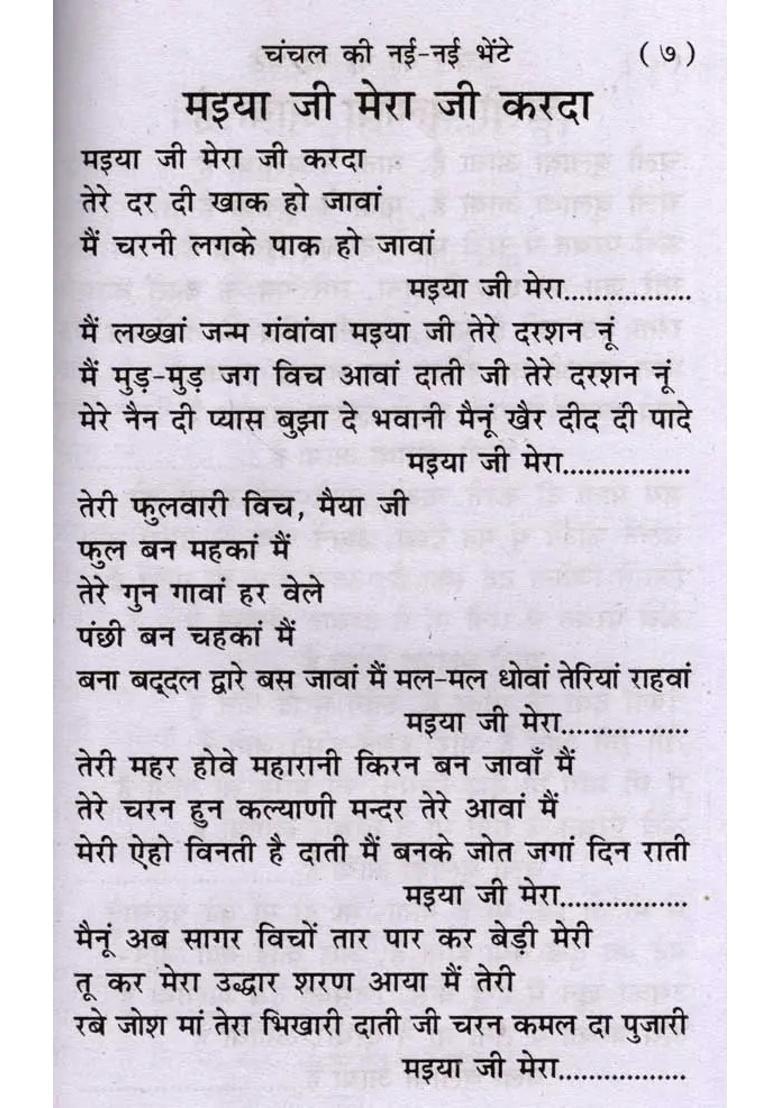 चंचल की नई-नई भेंटे (७)
मइया जी मेरा जी करदा
मइया जी मेरा जी करदा
तेरे दर दी खाक हो जावां
मैं चरनी लगके पाक हो जावां
मइया जी मेरा.................
मैं लख्खां जन्म गंवांवा मइया जी तेरे दरशन नूं
मैं मुड़-मुड़ जग विच आवां दाती जी तेरे दरशन नूं
मेरे नैन दी प्यास बुझा दे भवानी मैनूं खैर दीद दी पादे
मइया जी मेरा.................
तेरी फुलवारी विच, मैया जी
फुल बन महकां मैं
तेरे गुन गावां हर वेले
पंछी बन चहकां मैं
बना बद्दल द्वारे बस जावां मैं मल-मल धोवां तेरियां राहवां
मइया जी मेरा.................
तेरी महर होवे महारानी किरन बन जावाँ मैं
तेरे चरन हुन कल्याणी मन्दर तेरे आवां मैं
मेरी ऐहो विनती है दाती मैं बनके जोत जगां दिन राती
मइया जी मेरा.................
मैनूं अब सागर विचों तार पार कर बेड़ी मेरी
तू कर मेरा उद्धार शरण आया मैं तेरी
रबे जोश मां तेरा भिखारी दाती जी चरन कमल दा पुजारी
मइया जी मेरा.................